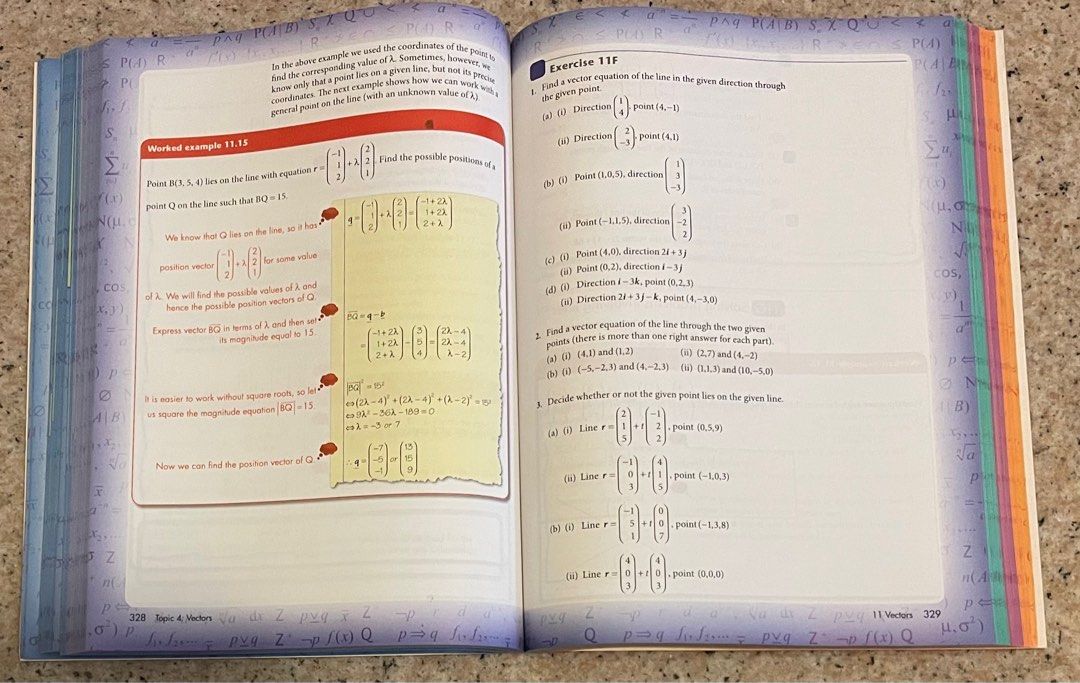 In the above example we used the coordinates of the point to
find the corresponding value of λ. Sometimes, however, we
know only that a point lies on a given line, but not its precise
coordinates. The next example shows how we can work with a
general point on the line (with an unknown value of λ).
Worked example 11.15
Point B(3, 5, 4) lies on the line with equation r = (−1 1 2) + λ (2 2 1). Find the possible positions of a
point Q on the line such that BQ = 15.
We know that Q lies on the line, so it has
position vector (−1 1 2) + λ (2 2 1) for some value
of λ. We will find the possible values of λ and
hence the possible position vectors of Q.
q = (−1 1 2) + λ (2 2 1) = (−1 + 2λ 1 + 2λ 2 + λ)
Express vector BQ in terms of λ and then set
its magnitude equal to 15.
BQ = q − b
= (−1 + 2λ 1 + 2λ 2 + λ) − (3 5 4) = (2λ − 4 2λ − 4 λ − 2)
It is easier to work without square roots, so let
us square the magnitude equation |BQ| = 15.
|BQ|² = 15²
⇔ (2λ − 4)² + (2λ − 4)² + (λ − 2)² = 15²
⇔ 9λ² − 36λ − 189 = 0
⇔ λ = −3 or 7
Now we can find the position vector of Q.
∴ q = (−7 −5 −1) or (13 15 9)
328 Topic 4: Vectors
Exercise 11F
1. Find a vector equation of the line in the given direction through
the given point.
(a) (i) Direction (1 4), point (4,−1)
(ii) Direction (2 −3), point (4,1)
(b) (i) Point (1,0,5), direction (1 3 −3)
(ii) Point (−1,1,5), direction (3 −2 2)
(c) (i) Point (4,0), direction 2i + 3j
(ii) Point (0,2), direction i − 3j
(d) (i) Direction i − 3k, point (0,2,3)
(ii) Direction 2i + 3j − k, point (4,−3,0)
2. Find a vector equation of the line through the two given
points (there is more than one right answer for each part).
(a) (i) (4,1) and (1,2) (ii) (2,7) and (4,−2)
(b) (i) (−5,−2,3) and (4,−2,3) (ii) (1,1,3) and (10,−5,0)
3. Decide whether or not the given point lies on the given line.
(a) (i) Line r = (2 1 5) + t (−1 2 2), point (0,5,9)
(ii) Line r = (−1 0 3) + t (4 1 5), point (−1,0,3)
(b) (i) Line r = (−1 5 1) + t (0 0 7), point (−1,3,8)
(ii) Line r = (4 0 3) + t (4 0 3), point (0,0,0)
11 Vectors 329